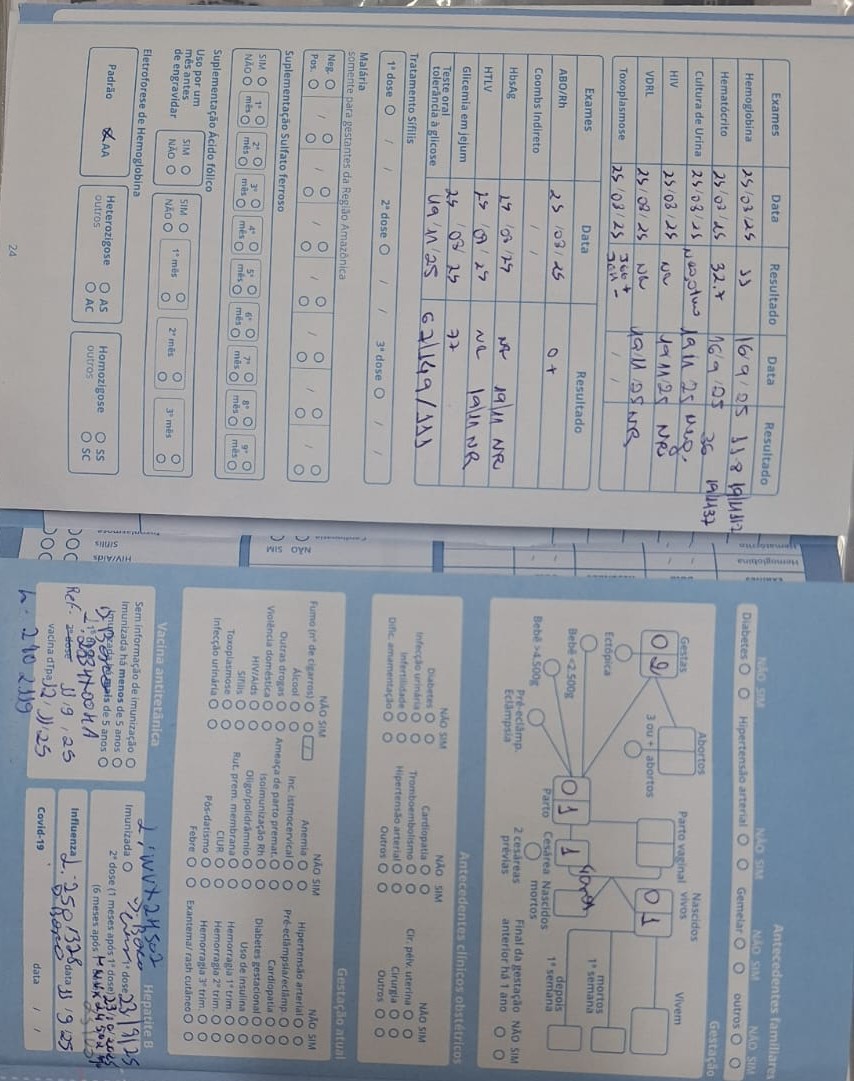 Exames Data Resultado Data Resultado
Hemoglobina 25/03/25 11 16/9/25 11,8 19/11 11,2
Hematócrito 25/03/25 32.7 16/9/25 36 19/11 37
Cultura de Urina 25/03/25 Negativo 19/11/25 Neg.
HIV 25/03/25 NR 19/11/25 NR
VDRL 25/03/25 NR 19/11/25 NR
Toxoplasmose 25/03/25 IgG + IgM - / /
Exames Data Resultado
ABO/Rh 25/03/25 O+
Coombs Indireto / /
HbsAg 25/03/25 NR 19/11 NR
HTLV 25/03/25 NR 19/11 NR
Glicemia em jejum 25/03/25 77
Teste oral tolerância à glicose 19/11/25 67/149/111
Tratamento Sífilis
1ª dose / / 2ª dose / / 3ª dose / /
Malária
somente para gestantes da Região Amazônica
Neg. / / / / / / /
Pos.
Suplementação Sulfato ferroso
SIM 1º mês 2º mês 3º mês 4º mês 5º mês 6º mês 7º mês 8º mês 9º mês
NÃO
Suplementação Ácido fólico
Uso por um mês antes de engravidar
SIM
NÃO
SIM 1º mês 2º mês 3º mês
NÃO
Eletroforese de Hemoglobina
Padrão AA
Heterozigose outros AS AC
Homozigose outros SS SC
24
Hematócrito
Hemoglobina
NÃO SIM
Sífilis
HIV/Aids
Antecedentes familiares
NÃO SIM NÃO SIM NÃO SIM NÃO SIM
Diabetes Hipertensão arterial Gemelar outros
Gestação
Gestas 02
Abortos
Parto vaginal
Nascidos vivos 01
Vivem
Ectópica
3 ou + abortos
Bebê <2.500g
Bebê >4.500g
Pré-eclâmp.
Eclâmpsia
Parto 01
Cesárea 1
2 cesáreas prévias
Nascidos mortos
mortos 1ª semana
depois 1ª semana
Final da gestação anterior há 1 ano
NÃO SIM
Antecedentes clínicos obstétricos
NÃO SIM NÃO SIM NÃO SIM
Diabetes Cardiopatia Cir. pélv. uterina
Infecção urinária Tromboembolismo Cirurgia
Infertilidade Hipertensão arterial Outros
Dific. amamentação Outros
Gestação atual
NÃO SIM NÃO SIM NÃO SIM
Fumo (nº de cigarros) Anemia Hipertensão arterial
Álcool Inc. istmocervical Pré-eclâmpsia/eclâmp.
Outras drogas Ameaça de parto premat. Cardiopatia
Violência doméstica Isoimunização Rh Diabetes gestacional
HIV/Aids Oligo/polidrâmnio Uso de insulina
Sífilis Rut. prem. membrana Hemorragia 1º trim.
Toxoplasmose CIUR Hemorragia 2º trim.
Infecção urinária Pós-datismo Hemorragia 3º trim.
Febre Exantema/rash cutâneo
Vacina antitetânica
Sem informação de imunização
Imunizada há menos de 5 anos
Imunizada há mais de 5 anos
Ref. 2ª dose 11/9/25
vacina dTpa 12/11/25
Hepatite B
Imunizada
1ª dose
2ª dose (1 meses após 1ª dose)
(6 meses após 1ª
Influenza data 11/9/25
Covid-19 data / /